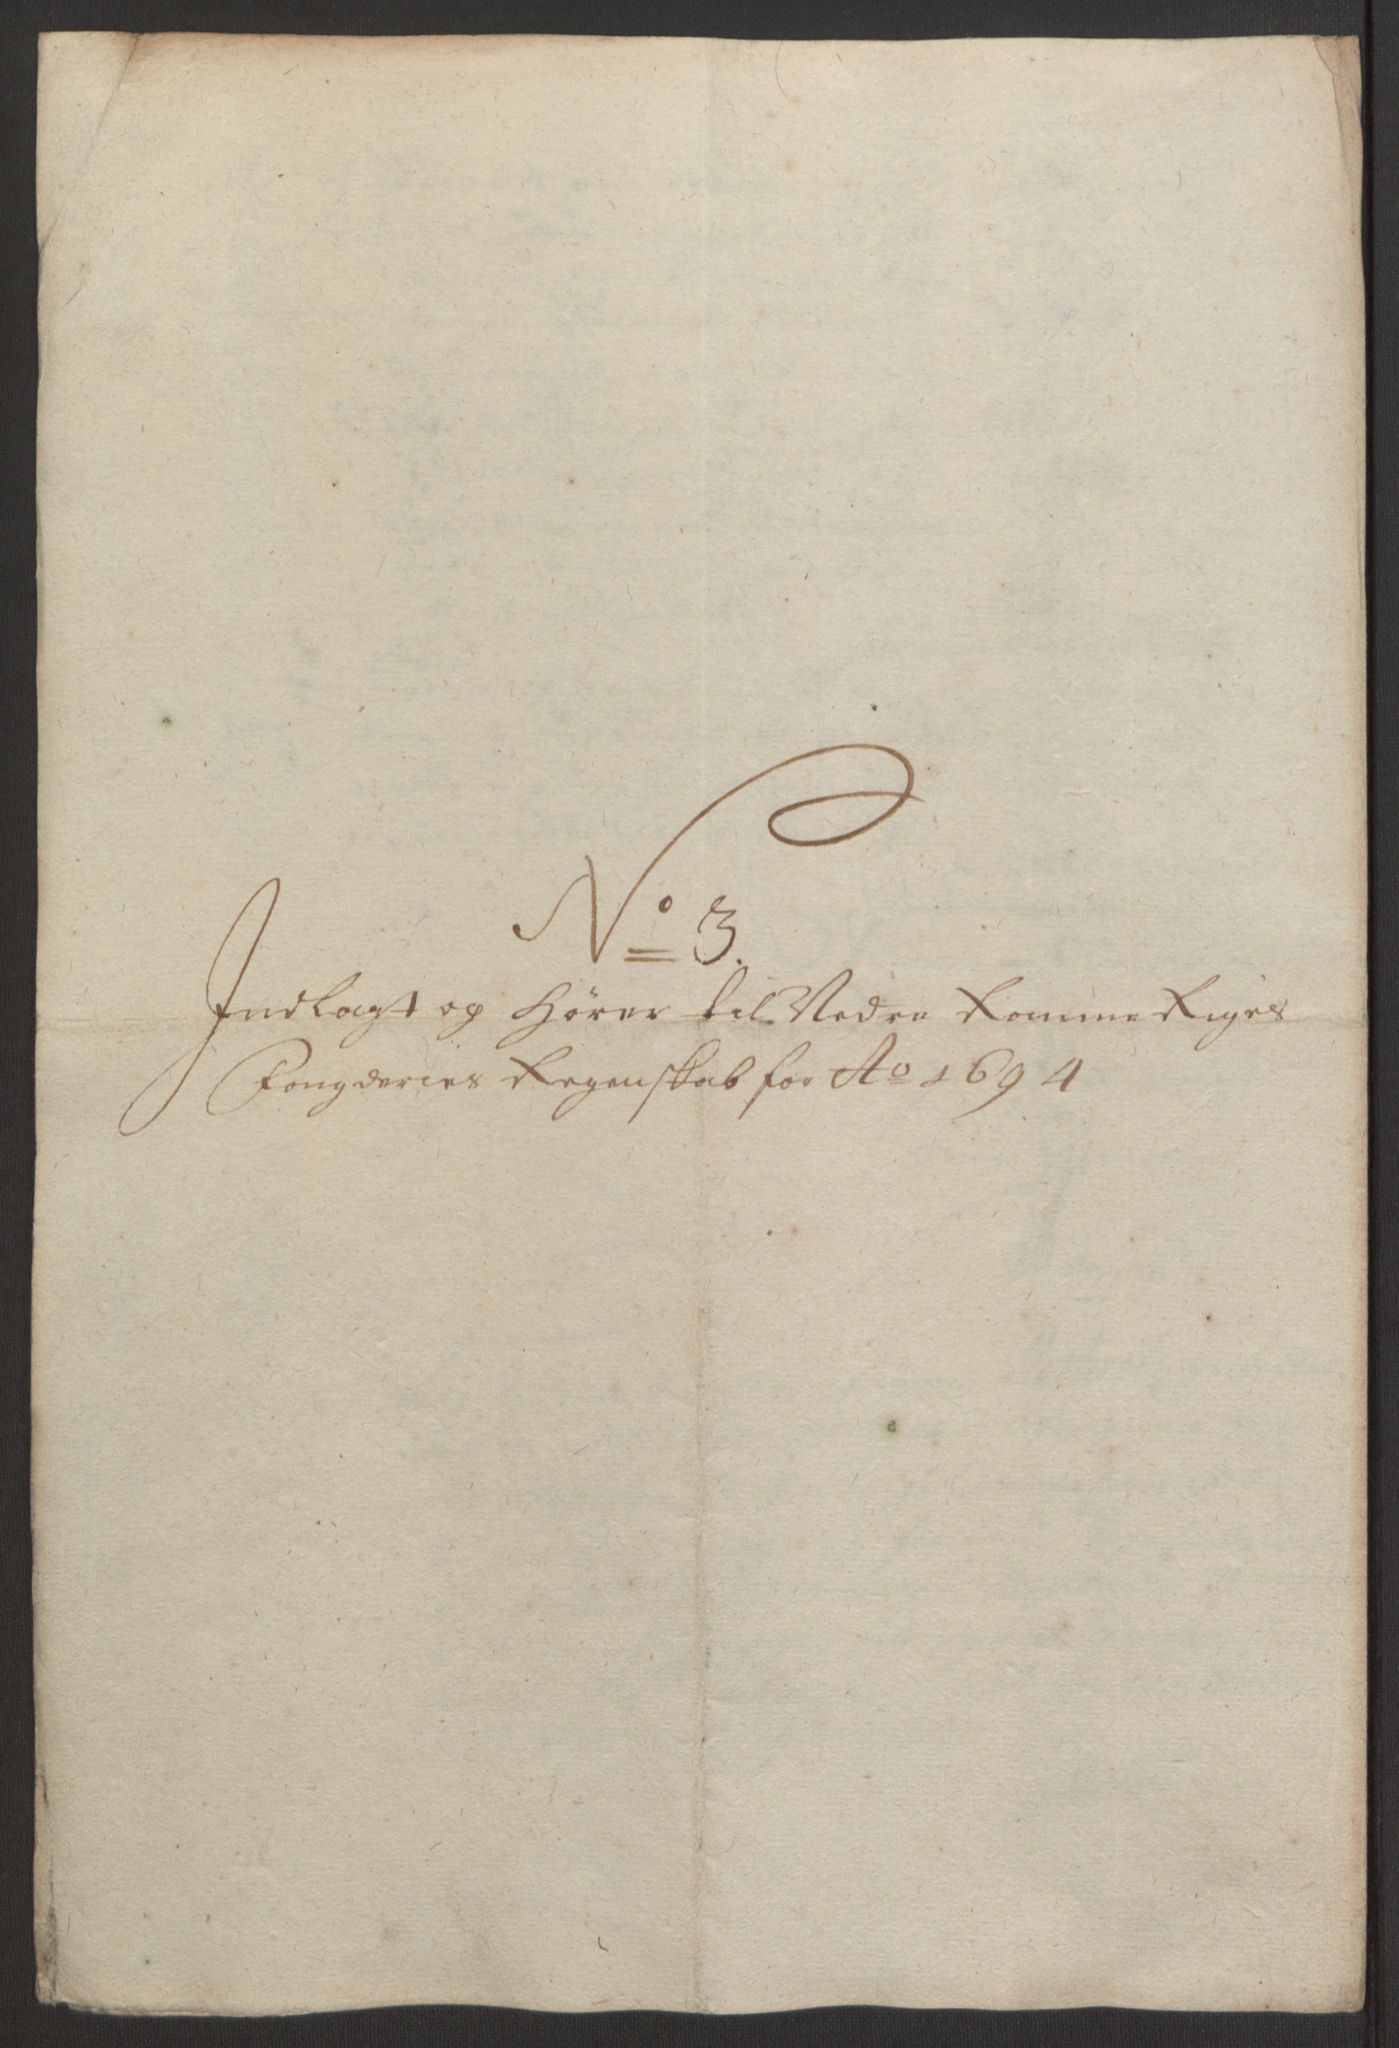 No 3.
Indlagt og Hörer til Nedre Romme Riges
Fougderies Regenskab for Ao 1694